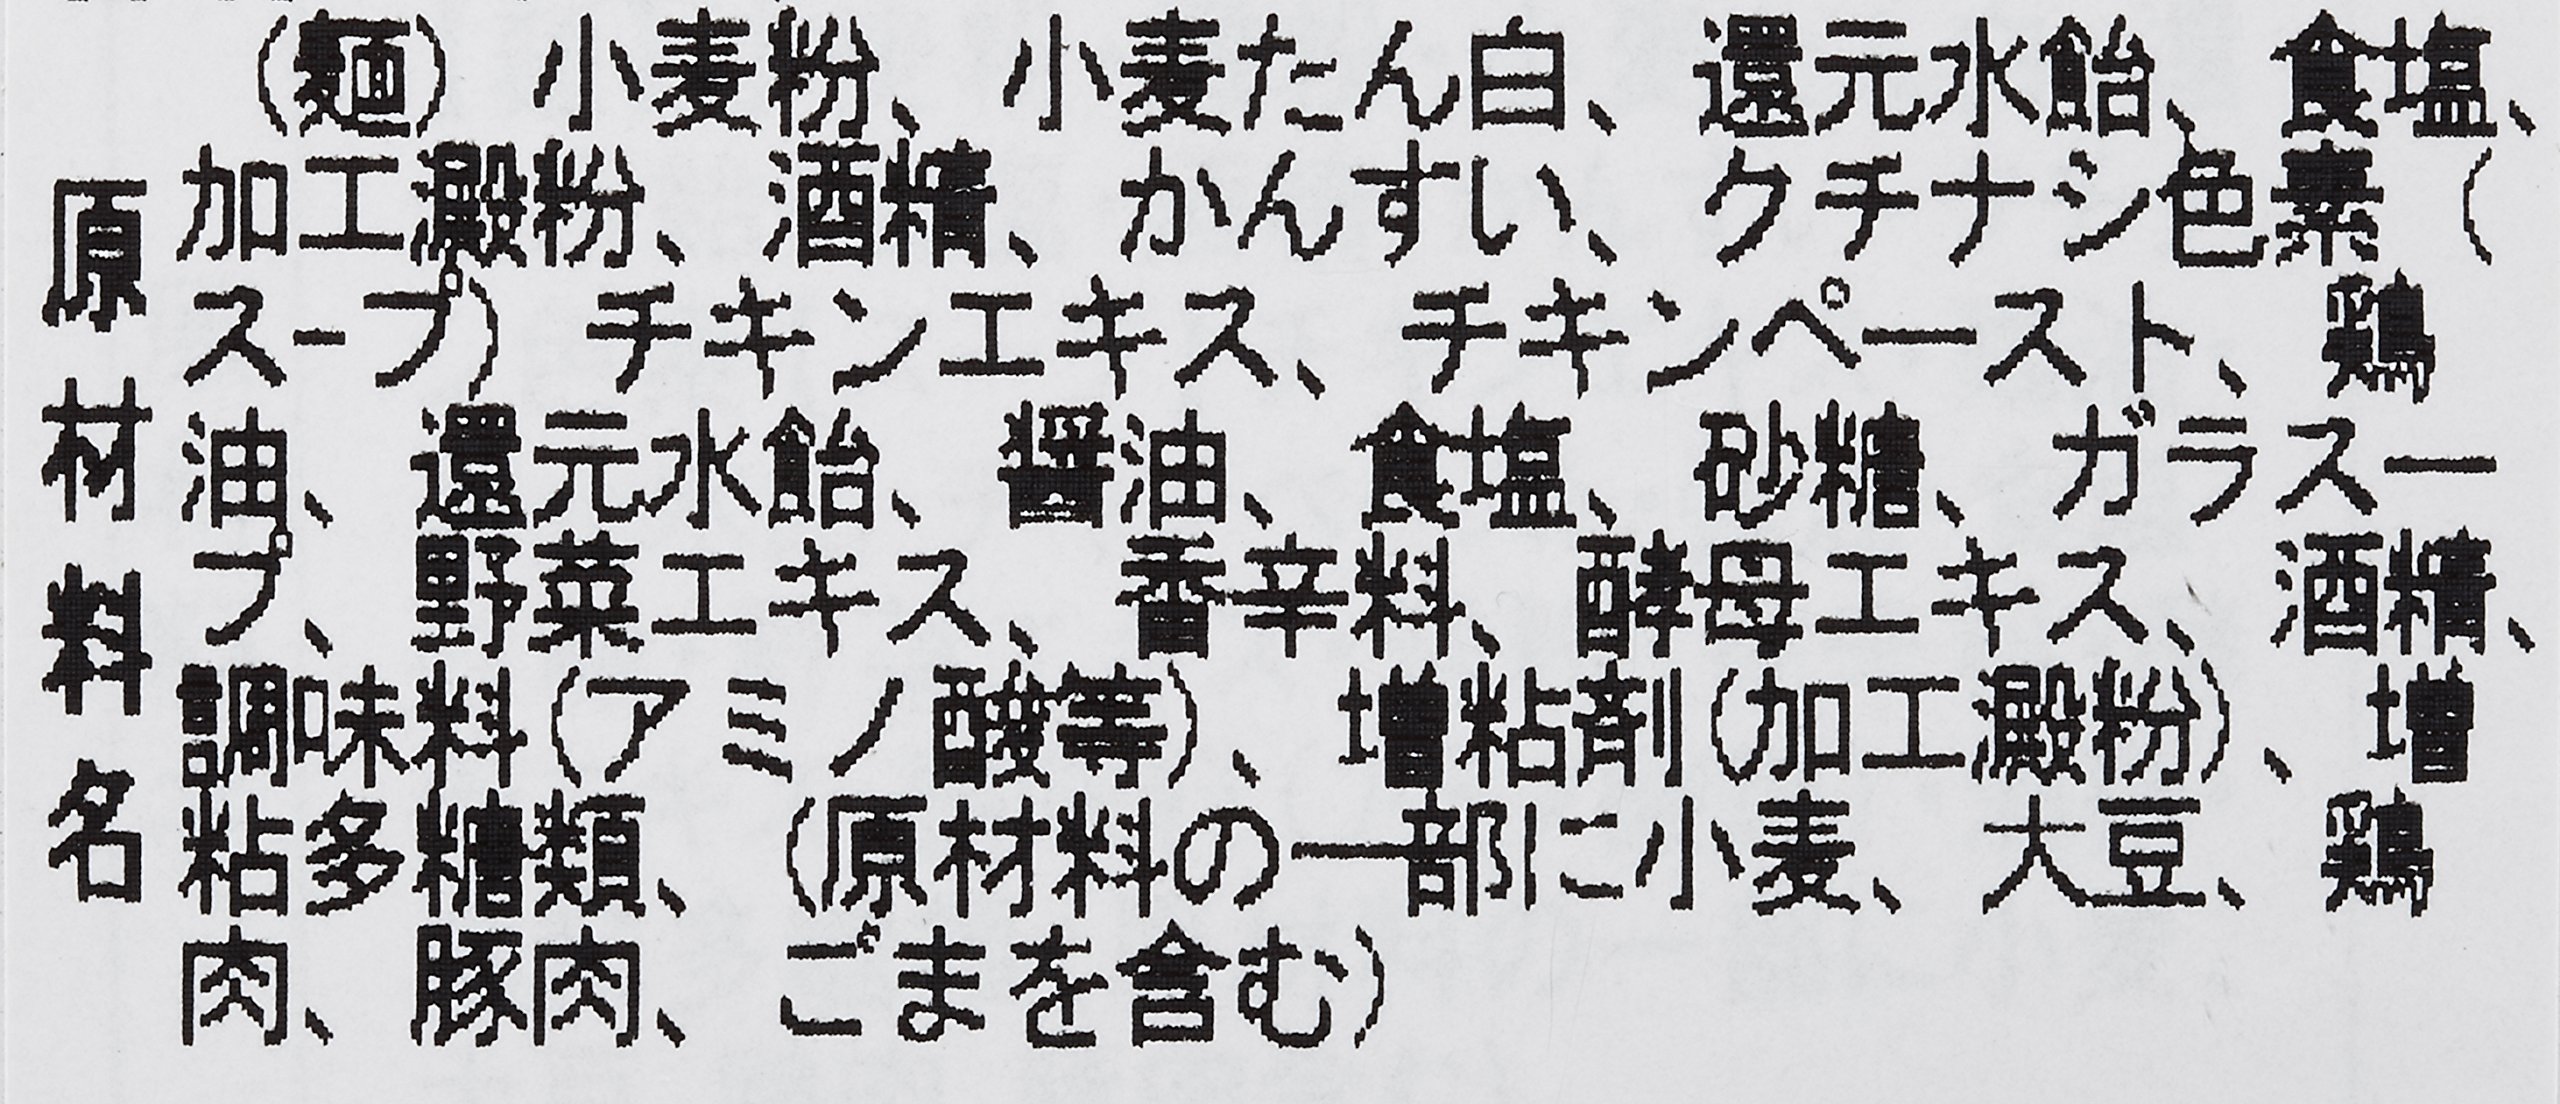 原材料名
(麺) 小麦粉、小麦たん白、還元水飴、食塩、
加工澱粉、酒精、かんすい、クチナシ色素 (
スープ) チキンエキス、チキンペースト、鶏
油、還元水飴、醤油、食塩、砂糖、ガラスー
プ、野菜エキス、香辛料、酵母エキス、酒精、
調味料(アミノ酸等)、増粘剤(加工澱粉)、増
粘多糖類、(原材料の一部に小麦、大豆、鶏
肉、豚肉、ごまを含む)